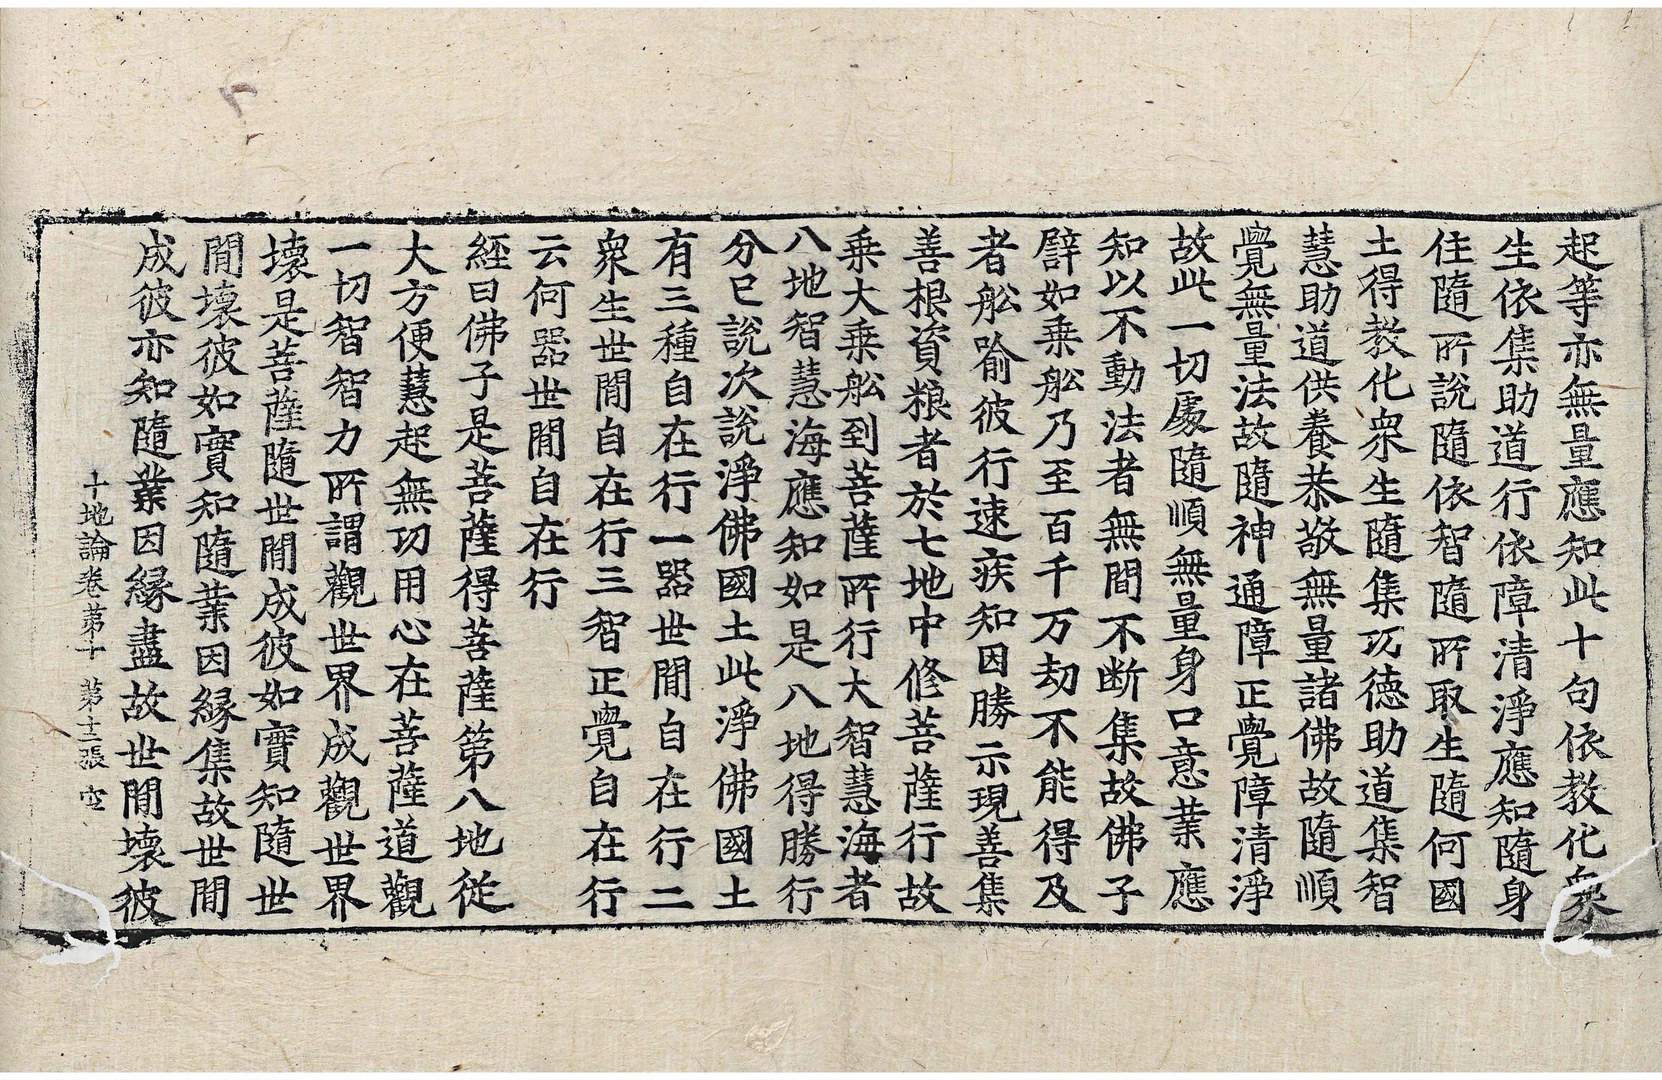 起等亦無量應知此十句依教化衆
生依集助道行依障清淨應知隨身
住隨所說隨依智隨所取生隨何國
土得教化衆生隨集㓛德助道集智
慧助道供養恭敬無量諸佛故隨順
覺無量法故隨神通障正覺障清淨
故此一切處隨順無量身口意業應
知以不動法者無間不断集故佛子
譬如乗舩乃至百千万劫不能得及
者舩喻彼行速疾知因勝示現善集
善根資粮者於七地中修菩薩行故
乗大乗舩到菩薩所行大智慧海者
八地智慧海應知如是八地得勝行
分已說次說淨佛國土此淨佛國土
有三種自在行一器世間自在行二
衆生世間自在行三智正覺自在行
云何器世間自在行
經曰佛子是菩薩得菩薩第八地從
大方便慧起無㓛用心在菩薩道觀
一切智智力所謂觀世界成觀世界
壞是菩薩隨世間成彼如實知隨世
間壞彼如實知隨業因縁集故世間
成彼亦知隨業因縁盡故世間壞彼
十地論卷苐十 苐十二張 空